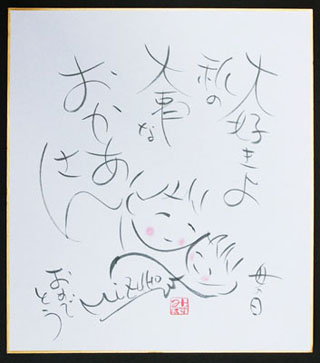 大好きよ
私の
大事な
おかあさん
母の日
おめでとう
MIZUHO